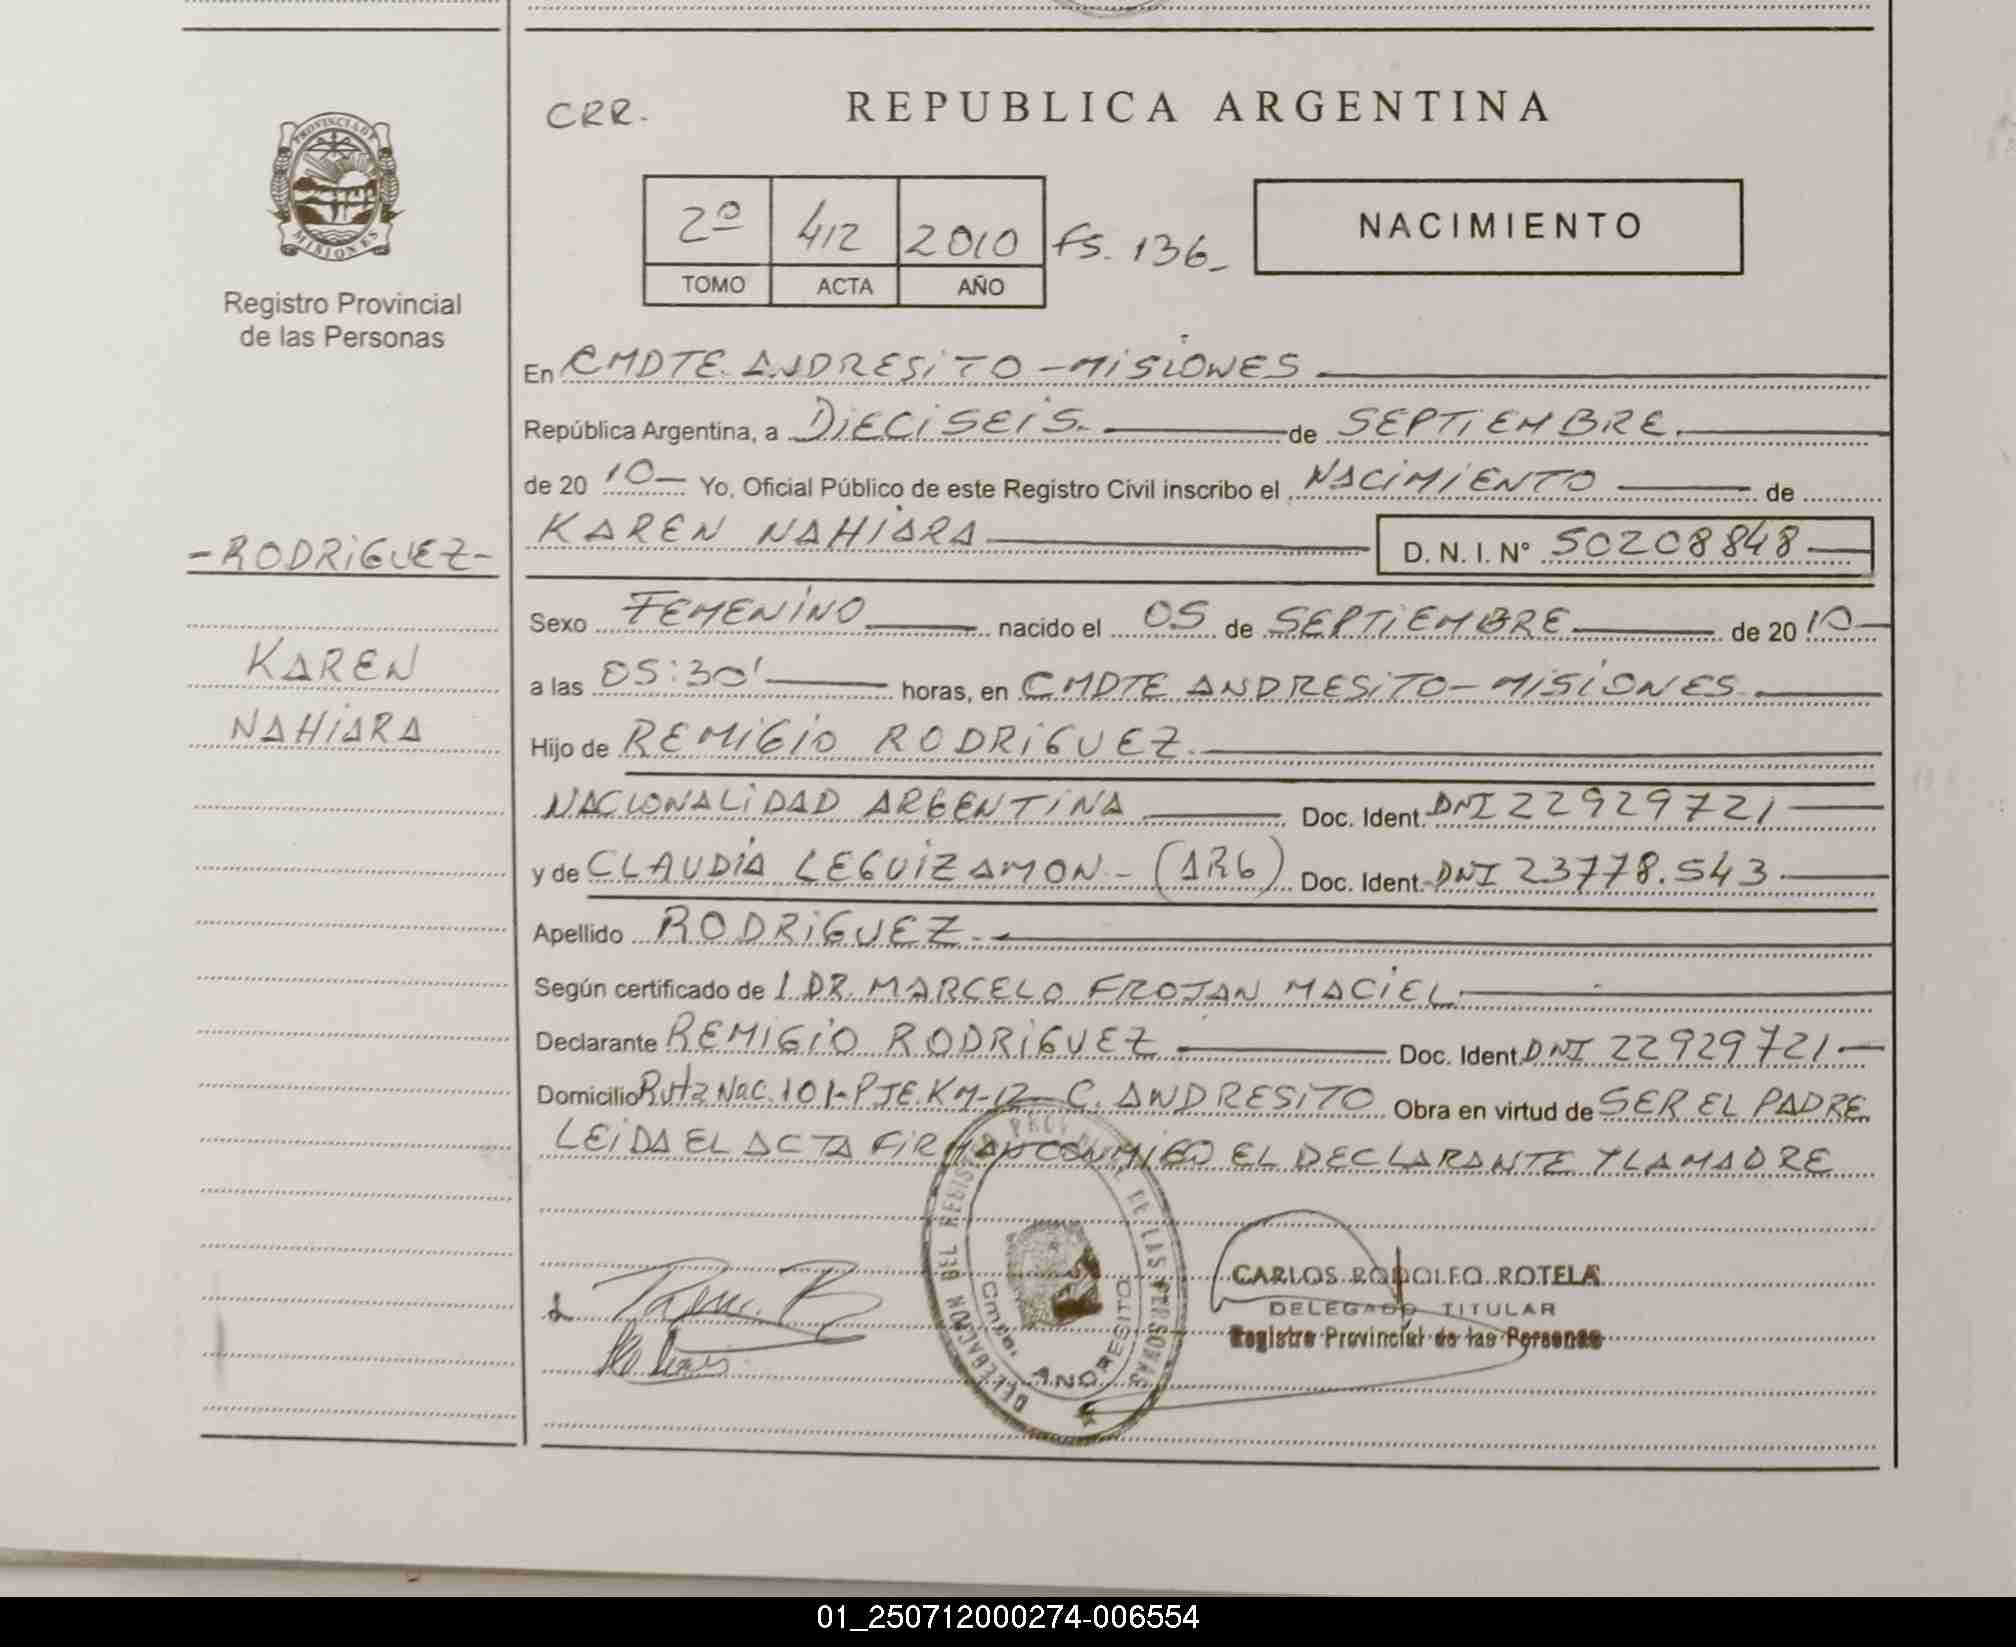 CRR.
REPUBLICA ARGENTINA
PROVINCIA DE
MISIONES
Registro Provincial
de las Personas
2º 412 2010 FS. 136-
TOMO ACTA AÑO
NACIMIENTO
En CMDTE. ANDRESiTO - MiSiONES
República Argentina, a DiECiSEiS. de SEPTiEMBRE.
de 20 10- Yo, Oficial Público de este Registro Civil inscribo el NACiMiENTO de
KAREN NAHiARA D. N. I. N° 50208848
-RODRiGUEZ-
KAREN
NAHiARA
Sexo FEMENiNO nacido el 05 de SEPTiEMBRE de 20 10
a las 05:30' horas, en CMDTE ANDRESiTO - MiSiONES
Hijo de REMiGiO RODRiGUEZ.
NACiONALiDAD ARGENTiNA Doc. Ident. DNI 22929721
y de CLAUDiA LEGUiZAMON - (ARG) Doc. Ident. DNI 23778.543
Apellido RODRiGUEZ.
Según certificado de 1 DR. MARCELO FROJAN MACiEL
Declarante REMiGiO RODRiGUEZ Doc. Ident DNI 22929721
Domicilio Ruta Nac. 101-PJE. KM-12 C. ANDRESiTO Obra en virtud de SER EL PADRE.
LEiDA EL ACTA FiRMAN CONMiGO EL DECLARANTE Y LA MADRE
DELEGACION DEL REGISTRO PROV. DE LAS PERSONAS
Cmte. ANDRESITO
CARLOS RODOLFO ROTELA
DELEGADO TITULAR
Registro Provincial de las Personas
01_250712000274-006554